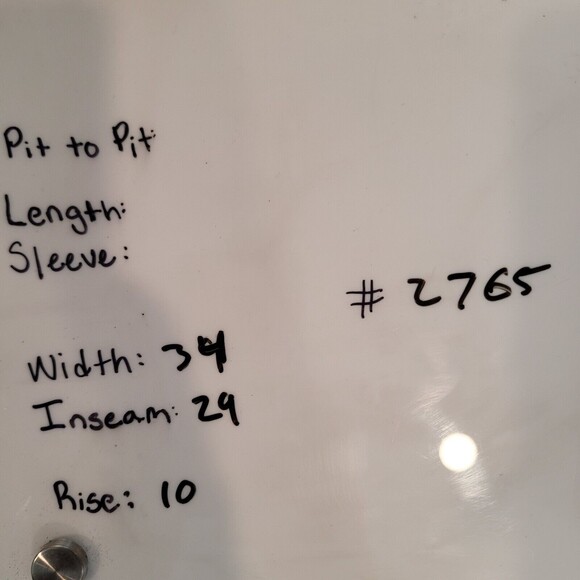 Pit to Pit:
Length:
Sleeve:
# 2765
Width: 34
Inseam: 29
Rise: 10